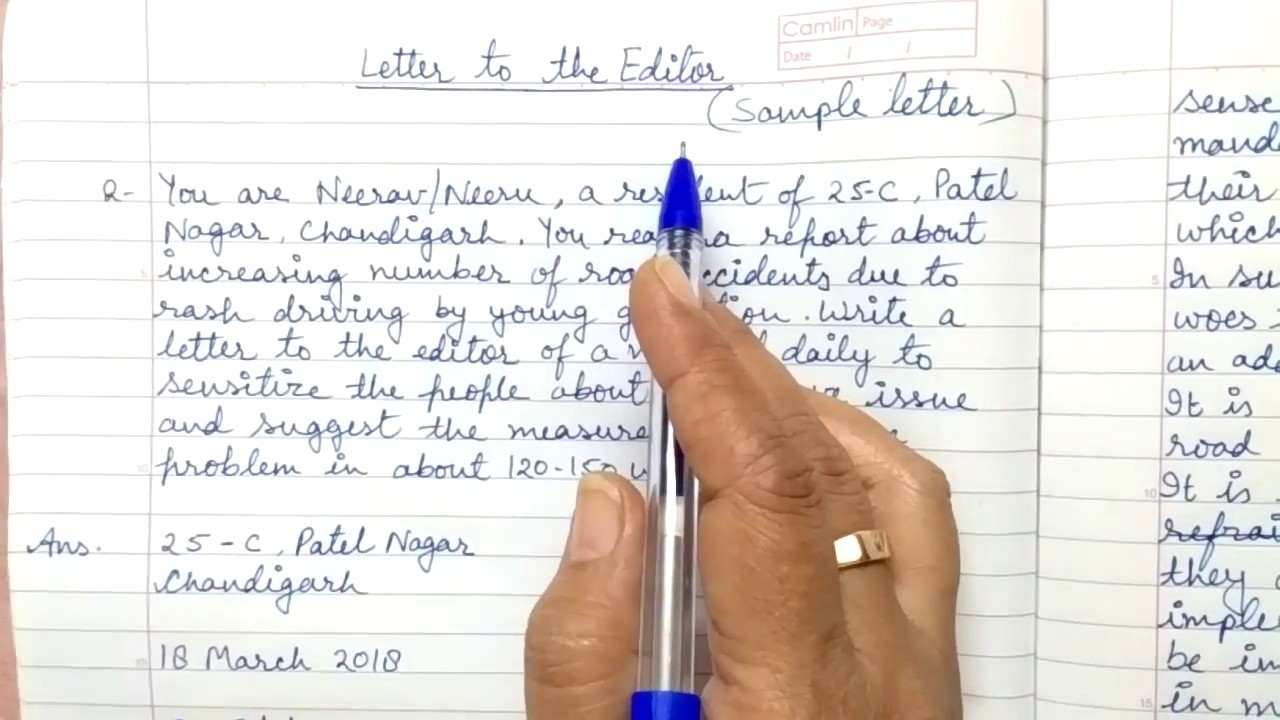 Camlin Page
Date / /
Letter to the Editor
(Sample letter)
Q- You are Neerav/Neeru, a resident of 25-C, Patel
Nagar, Chandigarh. You read a report about
increasing number of road accidents due to
rash driving by young generation. Write a
letter to the editor of a daily to
sensitize the people about issue
and suggest the measure
problem in about 120-150
Ans. 25-C, Patel Nagar
Chandigarh
18 March 2018
sense
mand
their
which
5 In su
woes
an ad
It is
road
10 It is
refrai
they
imple
be im
15 in m